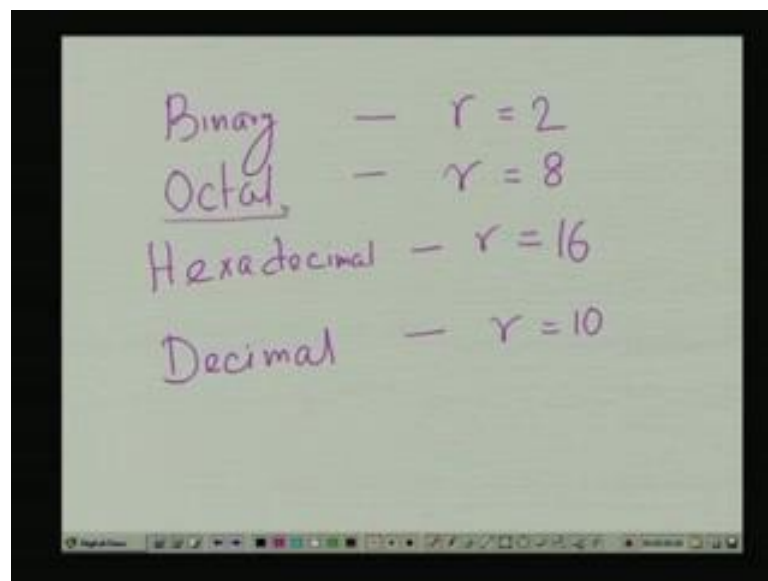 Binary — r = 2
Octal, — r = 8
Hexadecimal — r = 16
Decimal — r = 10